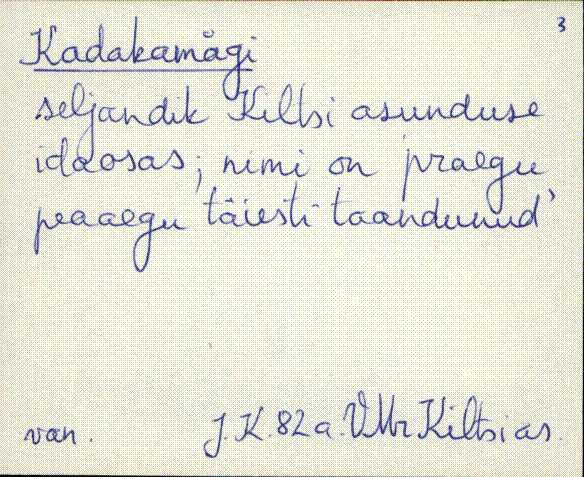 3
Kadakamägi
seljandik Kiltsi asunduse
idaosas; nimi on praegu
peaaegu täiesti taandunud
van. J. K. 82 a. VMr Kiltsi as.